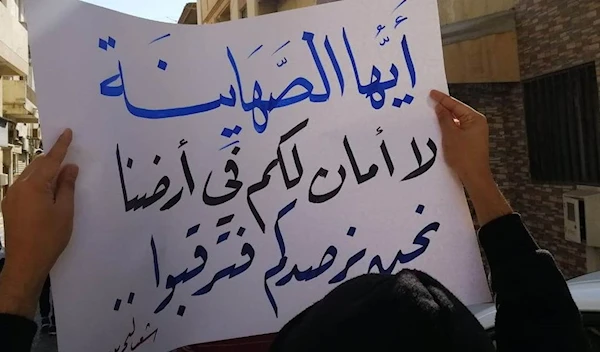 أَيُّهَا الصَّهَايِنَة
لا أمان لكم في أرضنا
نحن نرصدكم فترقبوا..